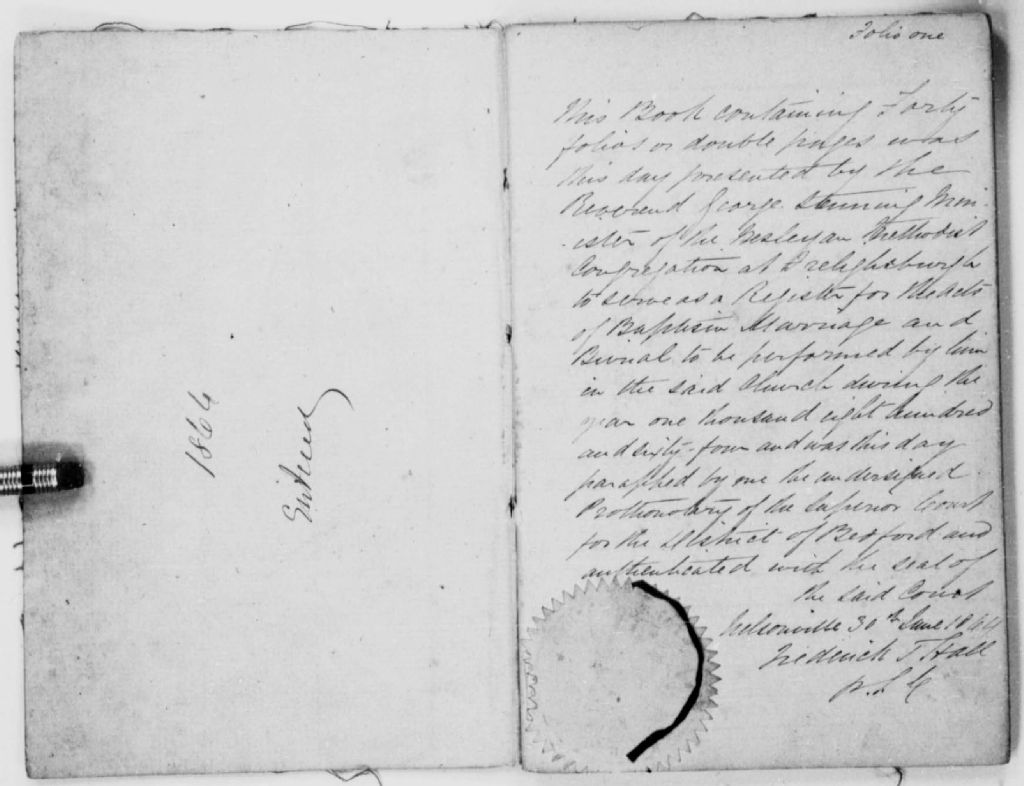 1864
Entered
Folio one
This Book containing Forty
folios or double pages was
this day presented by the
Reverend George Stenning Min-
-ister of the Wesleyan Methodist
Congregation at Frelighsburgh
to serve as a Register for the Acts
of Baptism Marriage and
Burial to be performed by him
in the said Church during the
year one thousand eight hundred
and sixty-four and was this day
paraphed by me the undersigned
Prothonotary of the Superior Court
for the District of Bedford and
authenticated with the seal of
the said Court
Nelsonville 30th June 1864
Frederick T Hall